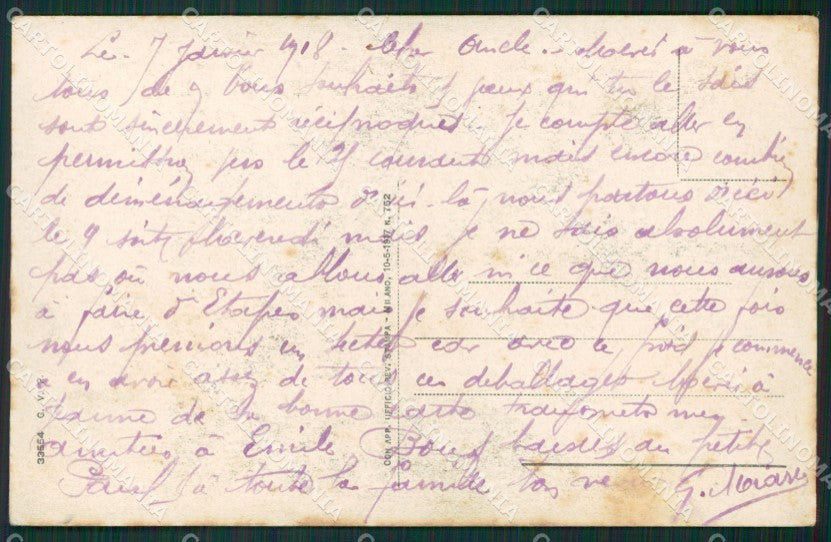 Le 7 Janvier 1918 - Cher Oncle. Merci à vous
tous de vos bons souhaits et veux qui tu le sais
sont sincèrement réciproques. Je compte aller en
permission vers le 25 courant mais encore combien
de déménagements d'ici là, nous partons d'ici
le 9 soit Mercredi mais je ne sais absolument
pas où nous allons aller ni ce que nous aurons
à faire d'Etapes mais je souhaite que cette fois
nous prenions un car avec ce froid je commence
à en avoir assez de tous ces déballages Merci à
de sa bonne carte transmets mes
amitiés à Emile Bons baisers au petit
Paul et à toute la famille ton neveu
CON APP. UFFICIO REV. STAMPA - MILANO, 10-5-1917 N. 752
33554 C. V.
CARTOLINOMANIA